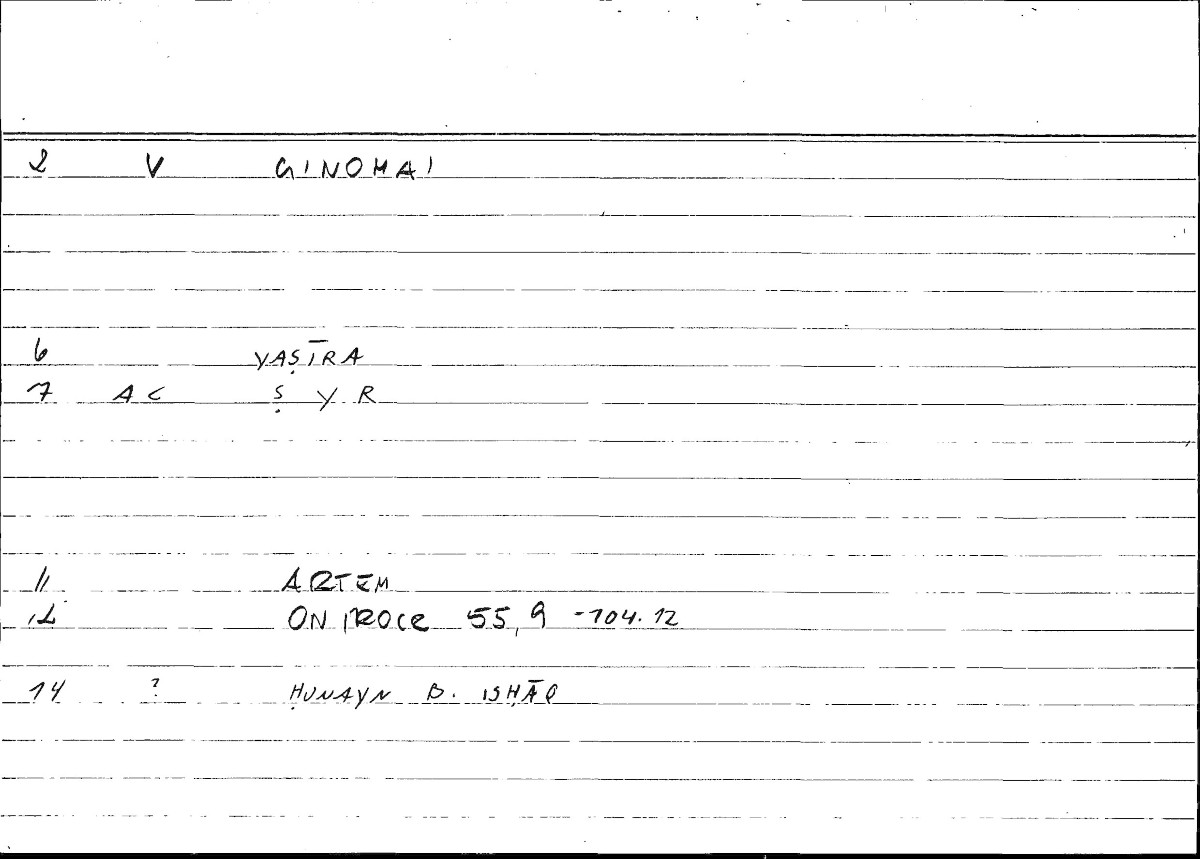 2 V GINOMAI
6 YAṢĪRA
7 AC Ṣ Y R
11 ARTEM
12 ONIROCR 55,9 -104.12
14 ? ḤUNAYN B. ISḤĀQ